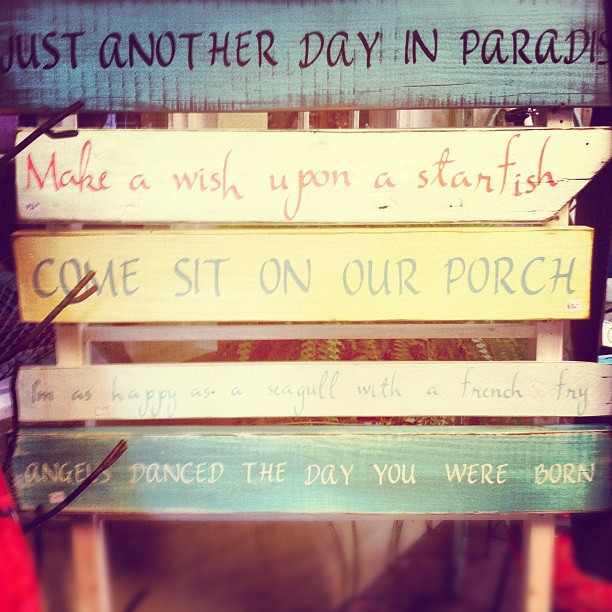 JUST ANOTHER DAY IN PARADIS
Make a wish upon a starfish
COME SIT ON OUR PORCH
I'm as happy as a seagull with a french fry
ANGELS DANCED THE DAY YOU WERE BORN